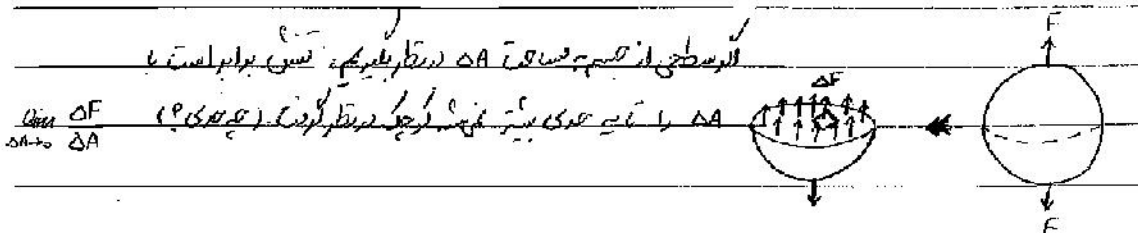 اگر سطحی از جسم به مساحت ΔA در نظر بگیریم، تنش برابر است با
lim ΔA→0 ΔF/ΔA
ΔA را تا یه حدی بیشتر نمیشه کوچک در نظر گرفت (چه حدی؟)
ΔF
F
F